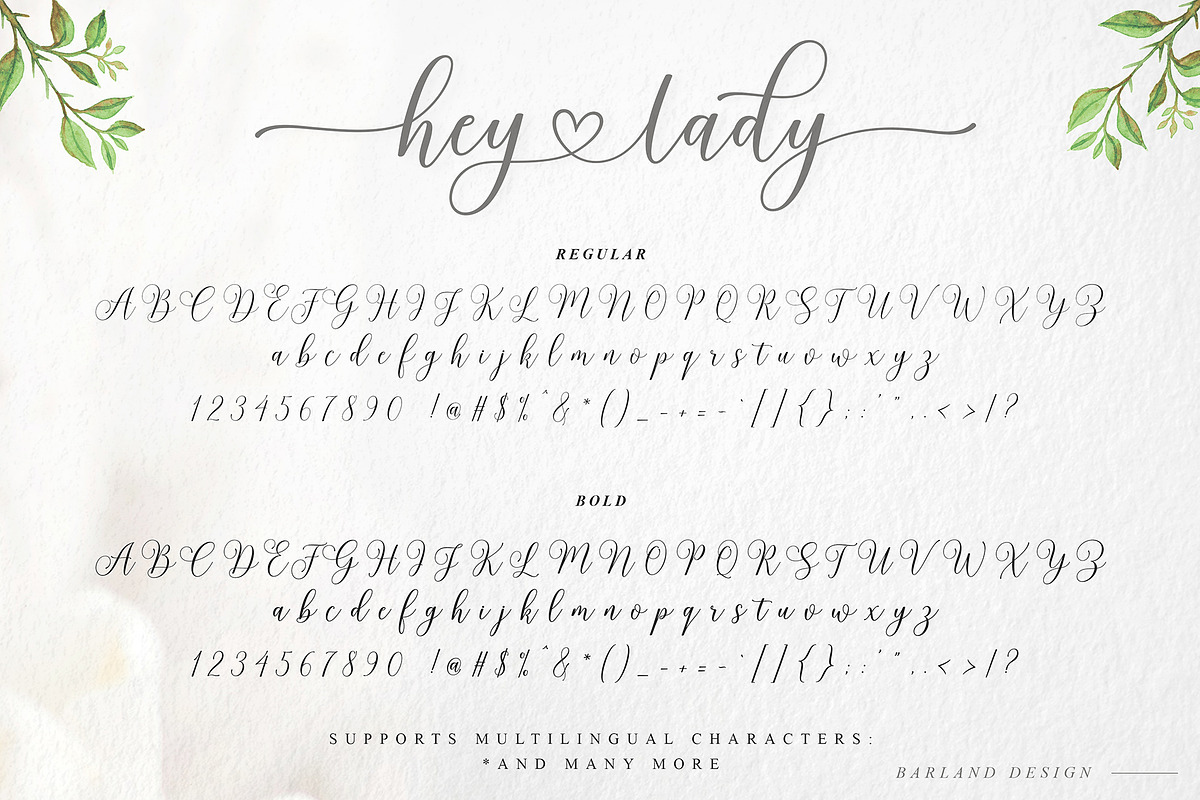 hey lady
REGULAR
A B C D E F G H I J K L M N O P Q R S T U V W X Y Z
a b c d e f g h i j k l m n o p q r s t u v w x y z
1 2 3 4 5 6 7 8 9 0 ! @ # $ % ^ & * ( ) _ - + = - ` [ ] { } ; : ' " , . < > / ?
BOLD
A B C D E F G H I J K L M N O P Q R S T U V W X Y Z
a b c d e f g h i j k l m n o p q r s t u v w x y z
1 2 3 4 5 6 7 8 9 0 ! @ # $ % ^ & * ( ) _ - + = - ` [ ] { } ; : ' " , . < > / ?
SUPPORTS MULTILINGUAL CHARACTERS:
*AND MANY MORE
BARLAND DESIGN